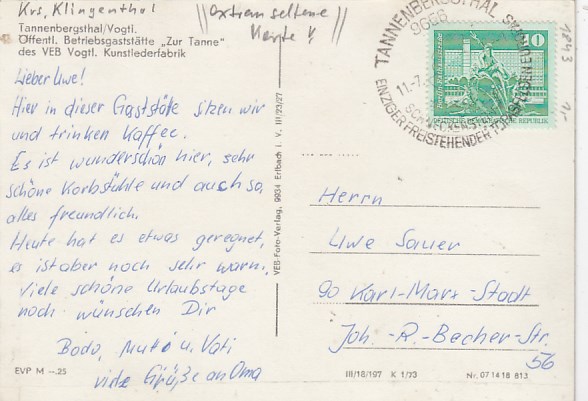 Krs. Klingenthal
extrem seltene
Karte!
Tannenbergsthal/Vogtl.
Öffentl. Betriebsgaststätte „Zur Tanne“
des VEB Vogtl. Kunstlederfabrik
Lieber Uwe!
Hier in dieser Gaststäte sitzen wir
und trinken Kaffee.
Es ist wunderschön hier, sehr
schöne Korbstühle und auch so,
alles freundlich.
Heute hat es etwas geregnet,
es ist aber noch sehr warm.
Viele schöne Urlaubstage
noch wünschen Dir
Bodo, Mutti u. Vati
viele Grüße an Oma
EVP M –.25
VEB-Foto-Verlag, 9934 Erlbach i. V. III/23/27
TANNENBERGSTHAL
9668
11.-7.
SCHNECKENSTEIN
EINZIGER FREISTEHENDER TOPASFELSEN EUROPAS
10
Berlin, Rathausstraße
DEUTSCHE DEMOKRATISCHE REPUBLIK
1843
Herrn
Uwe Sauer
90 Karl-Marx-Stadt
Joh.-R.-Becher-Str.
56
III/18/197 K 1/73
Nr. 07 14 18 813